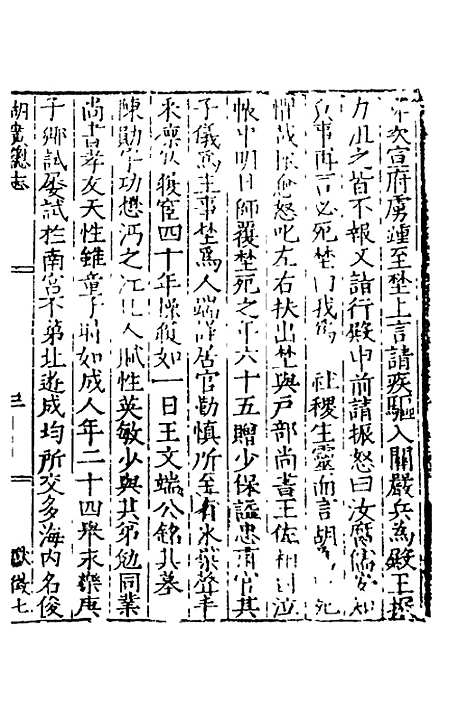 次宣府虜踵至埜上言請疾驅入關嚴兵為殿王振
力沮之皆不報又詣行殿申前請振怒曰汝腐儒安知
兵事再言必死埜曰我為社稷生靈而言胡死
振愈怒叱左右扶出埜與戶部尚書王佐相對泣
帳中明日師覆埜死之年六十五贈少保謚忠肅官其
子儀為主事埜為人端謹居官勤慎所至有氷蘗聲手
不廢俸宦四十年操履如一日王文端公銘其墓
陳勛字功懋沔之江人賦性英敏少與其弟勉同業
尚書孝友天性雖童子時如成人年二十四舉永樂庚
子鄉試屢試於南宮不第北遊成均所交多海內名俊
胡廣總志 三 獻徵七